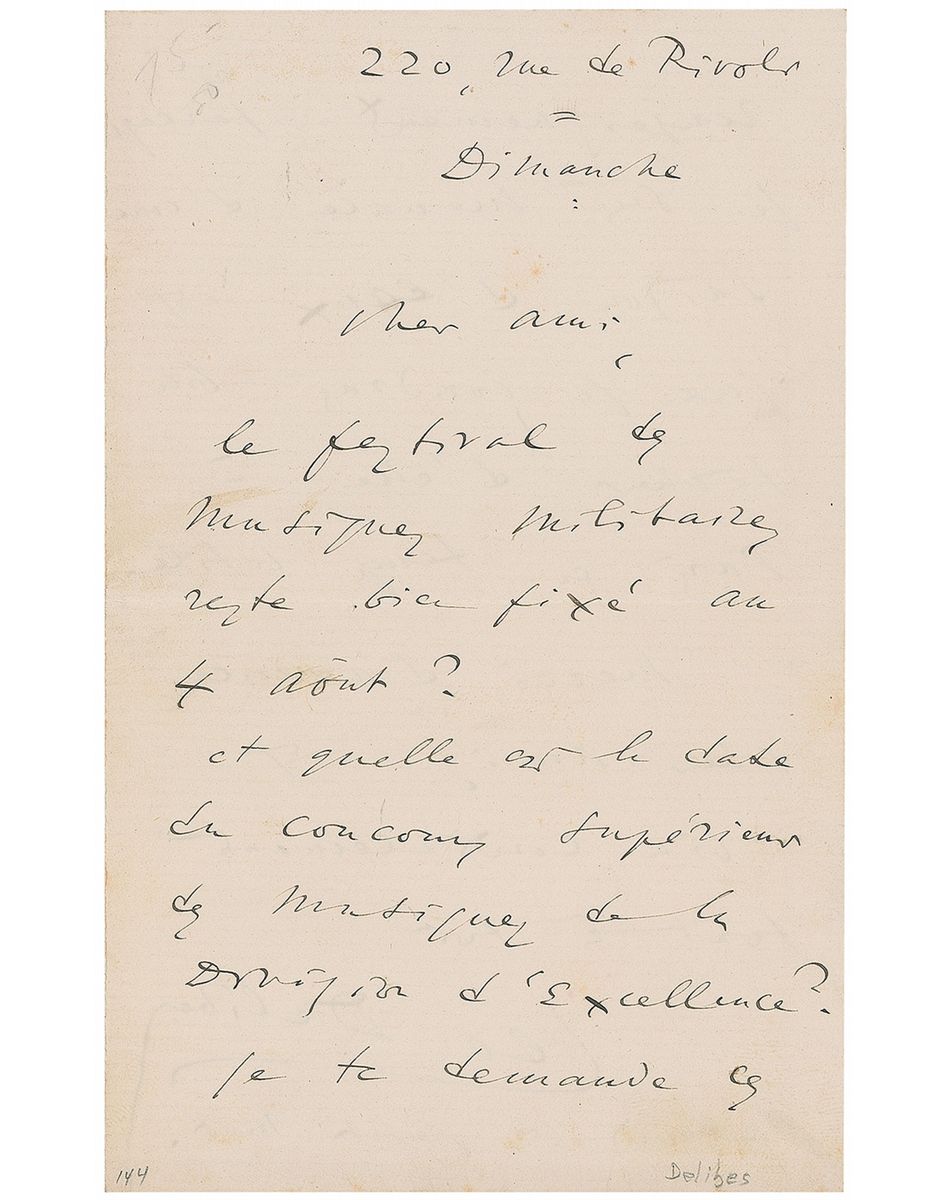 220, rue de Rivoli
Dimanche
cher ami,
le festival des
Musiques militaires
reste bien fixé au
4 Aôut ?
et quelle est la date
du concours supérieur
des Musiques de la
Division d'Excellence ?
je te demande ces
144
Delibes